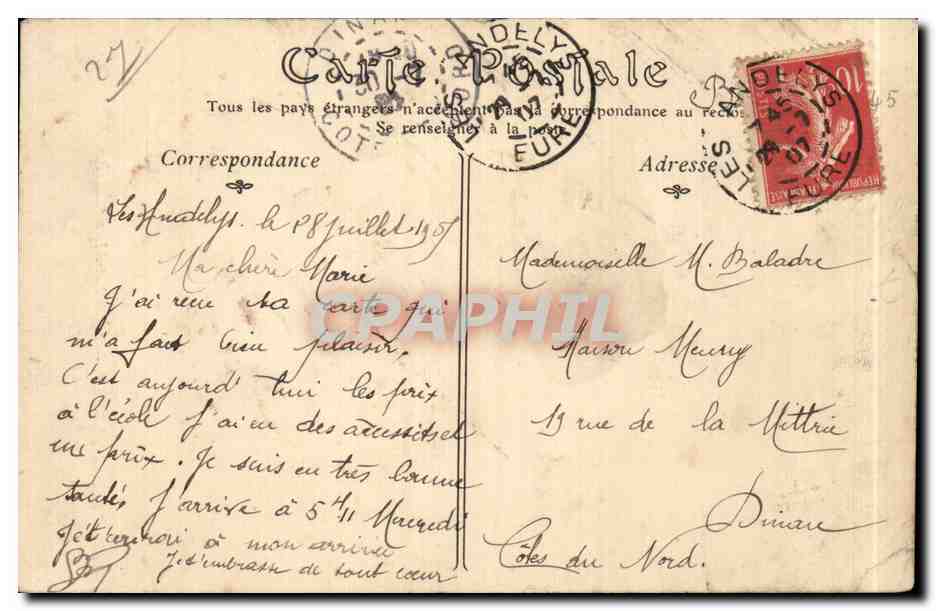 27
Carte Postale
Tous les pays étrangers n'acceptent pas la correspondance au recto
Se renseigner à la poste
Correspondance
Adresse
LES ANDELYS
EURE
LES ANDELYS
EURE
DINAN
COTES DU NORD
45
Les Andelys. le 28 juillet 1907
Ma chère Marie
J'ai reçu ta carte qui
m'a fait bien plaisir.
C'est aujourd'hui les prix
à l'école j'ai eu des accessits et
un prix. Je suis en très bonne
santé, J'arrive à 5 H 11 Mercredi
à mon arrivée
Je t'embrasse de tout cœur
Mademoiselle M. Baladre
Maison Meury
19 rue de la Mittrie
Dinan
Côtes du Nord.
CPAPHIL